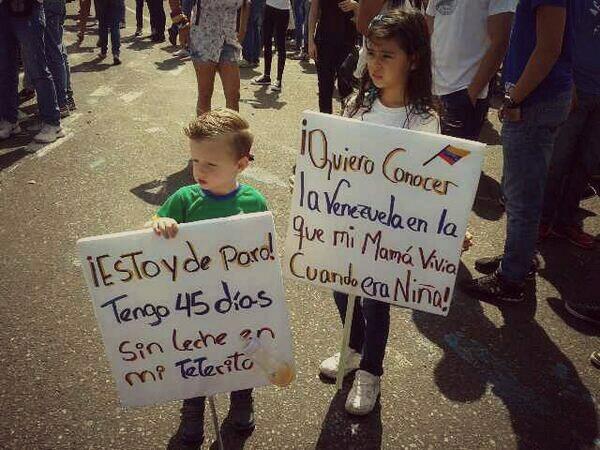 ¡EsToy de Paro!
Tengo 45 días
Sin Leche en
mi TeTerito
¡Quiero Conocer
la Venezuela en la
que mi Mamá Vivia
Cuando era Niña!